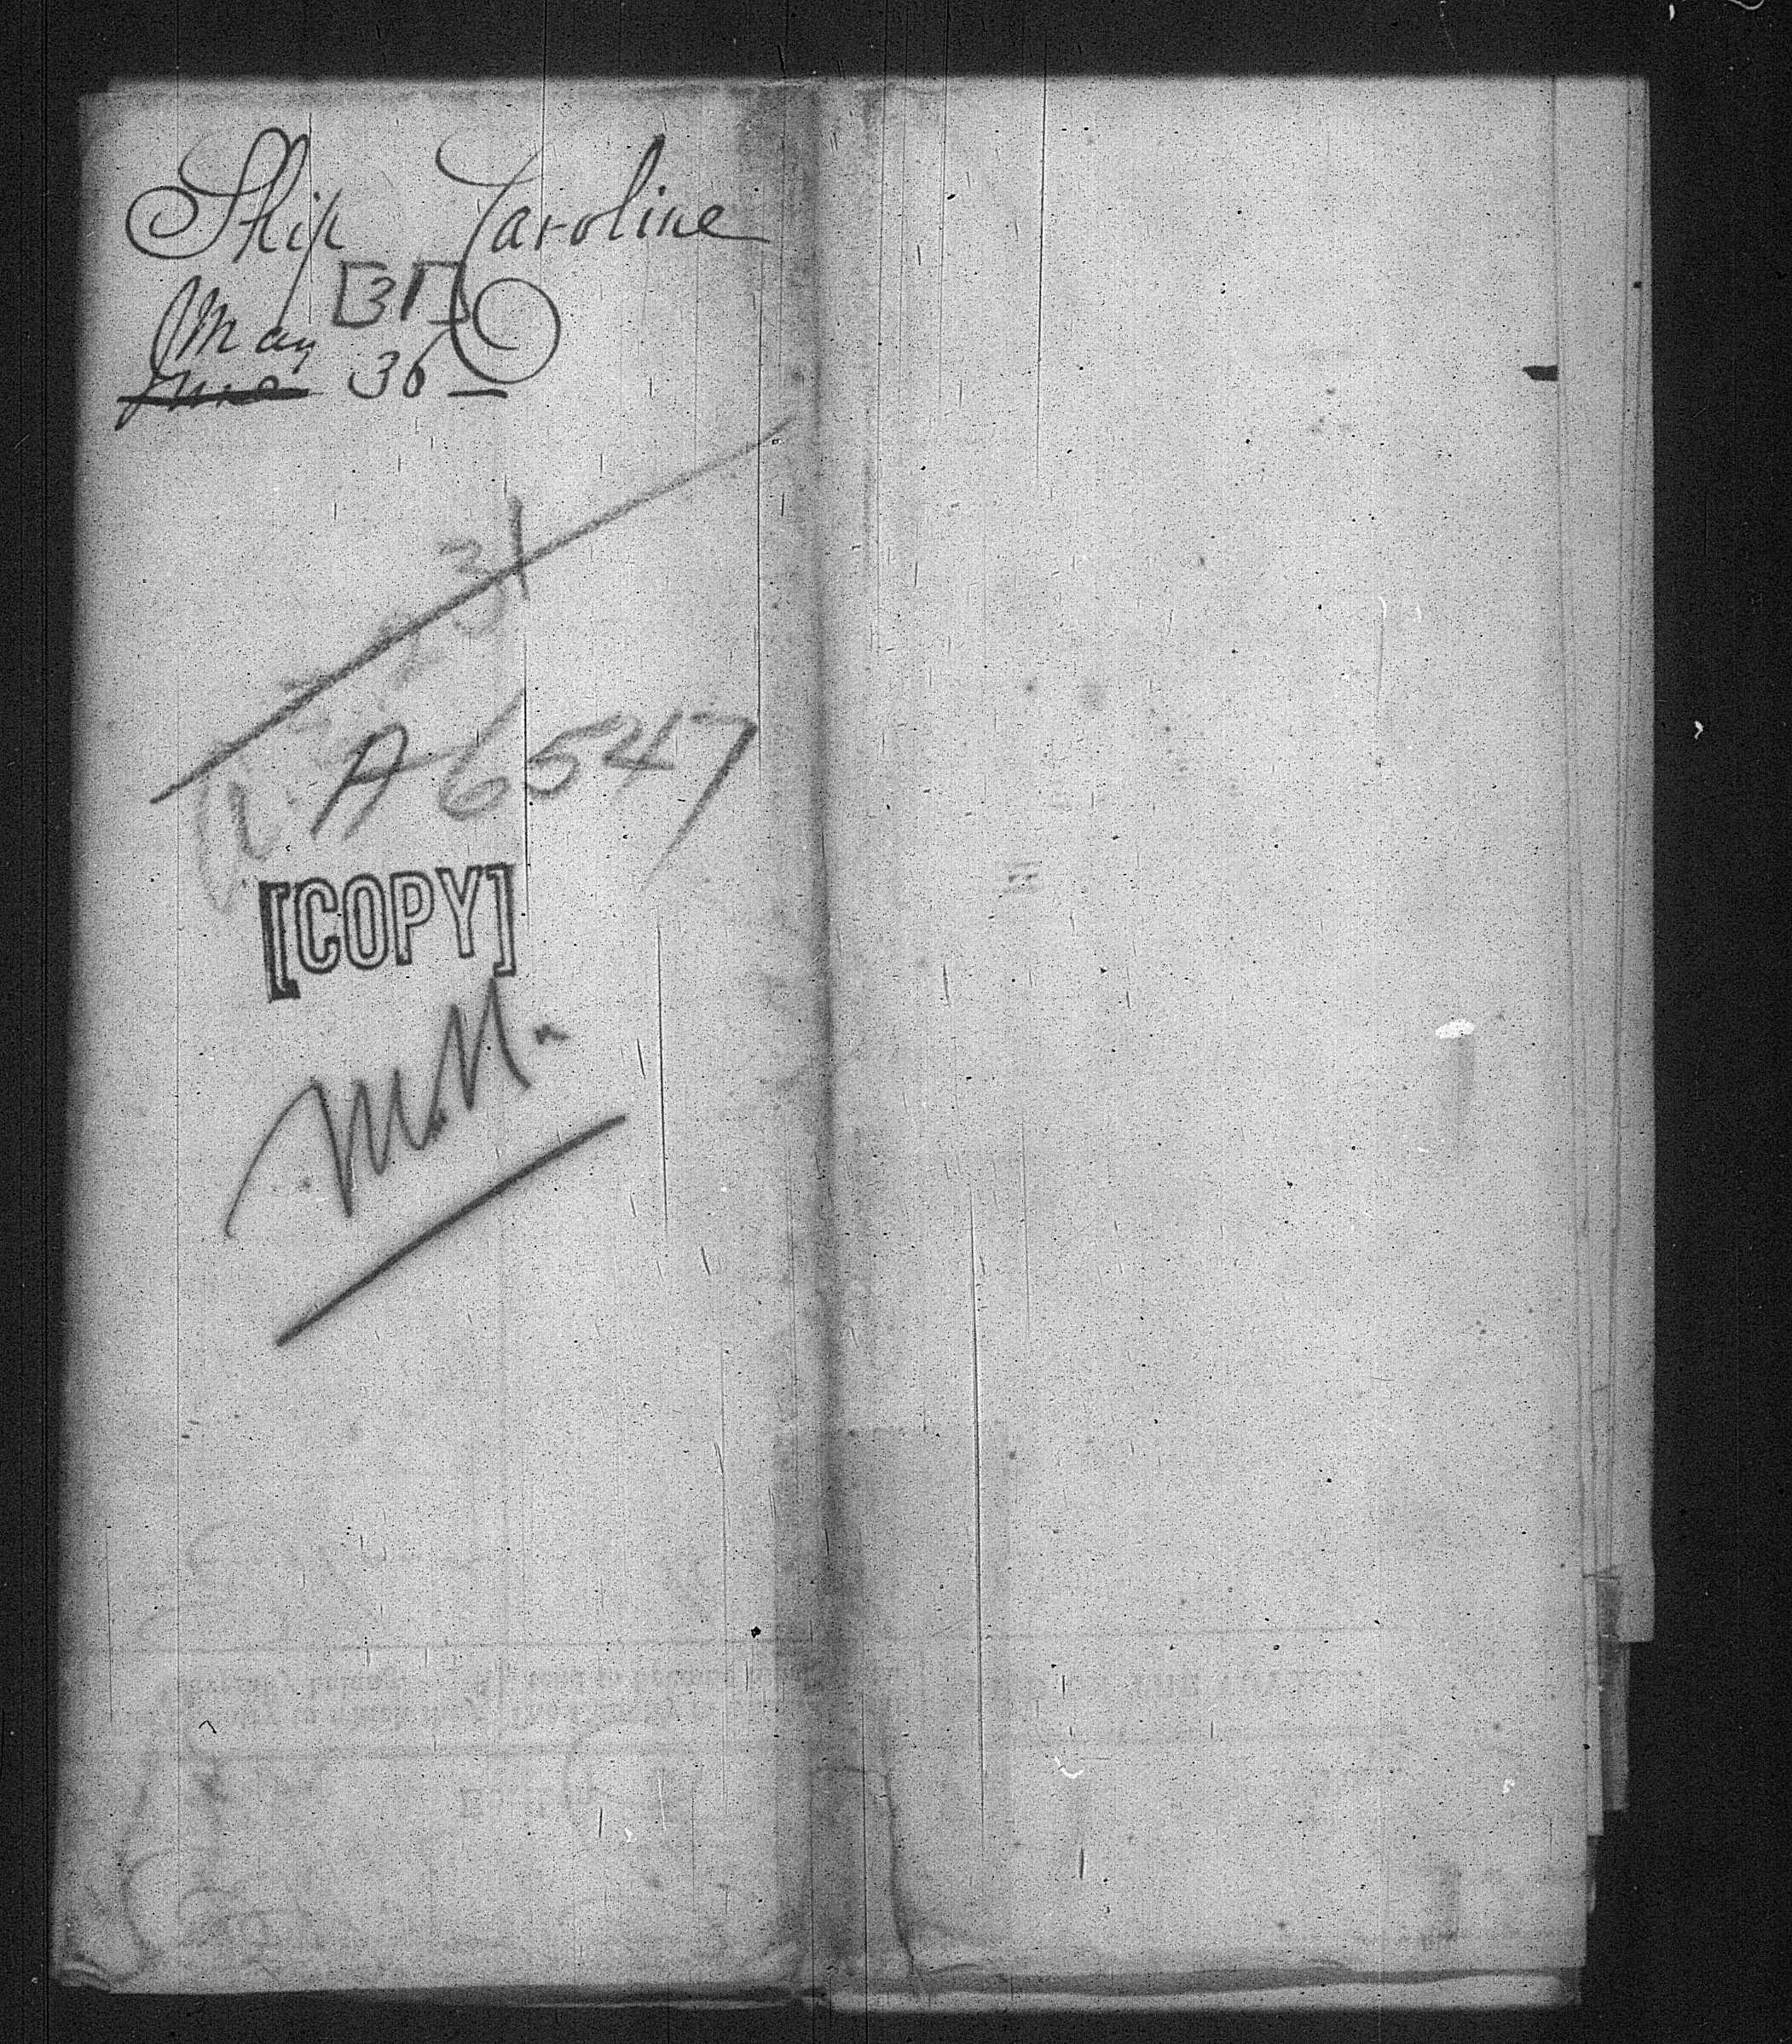 Ship Caroline
[31]
May
June 36
31
A 6547
[COPY]
M.M.